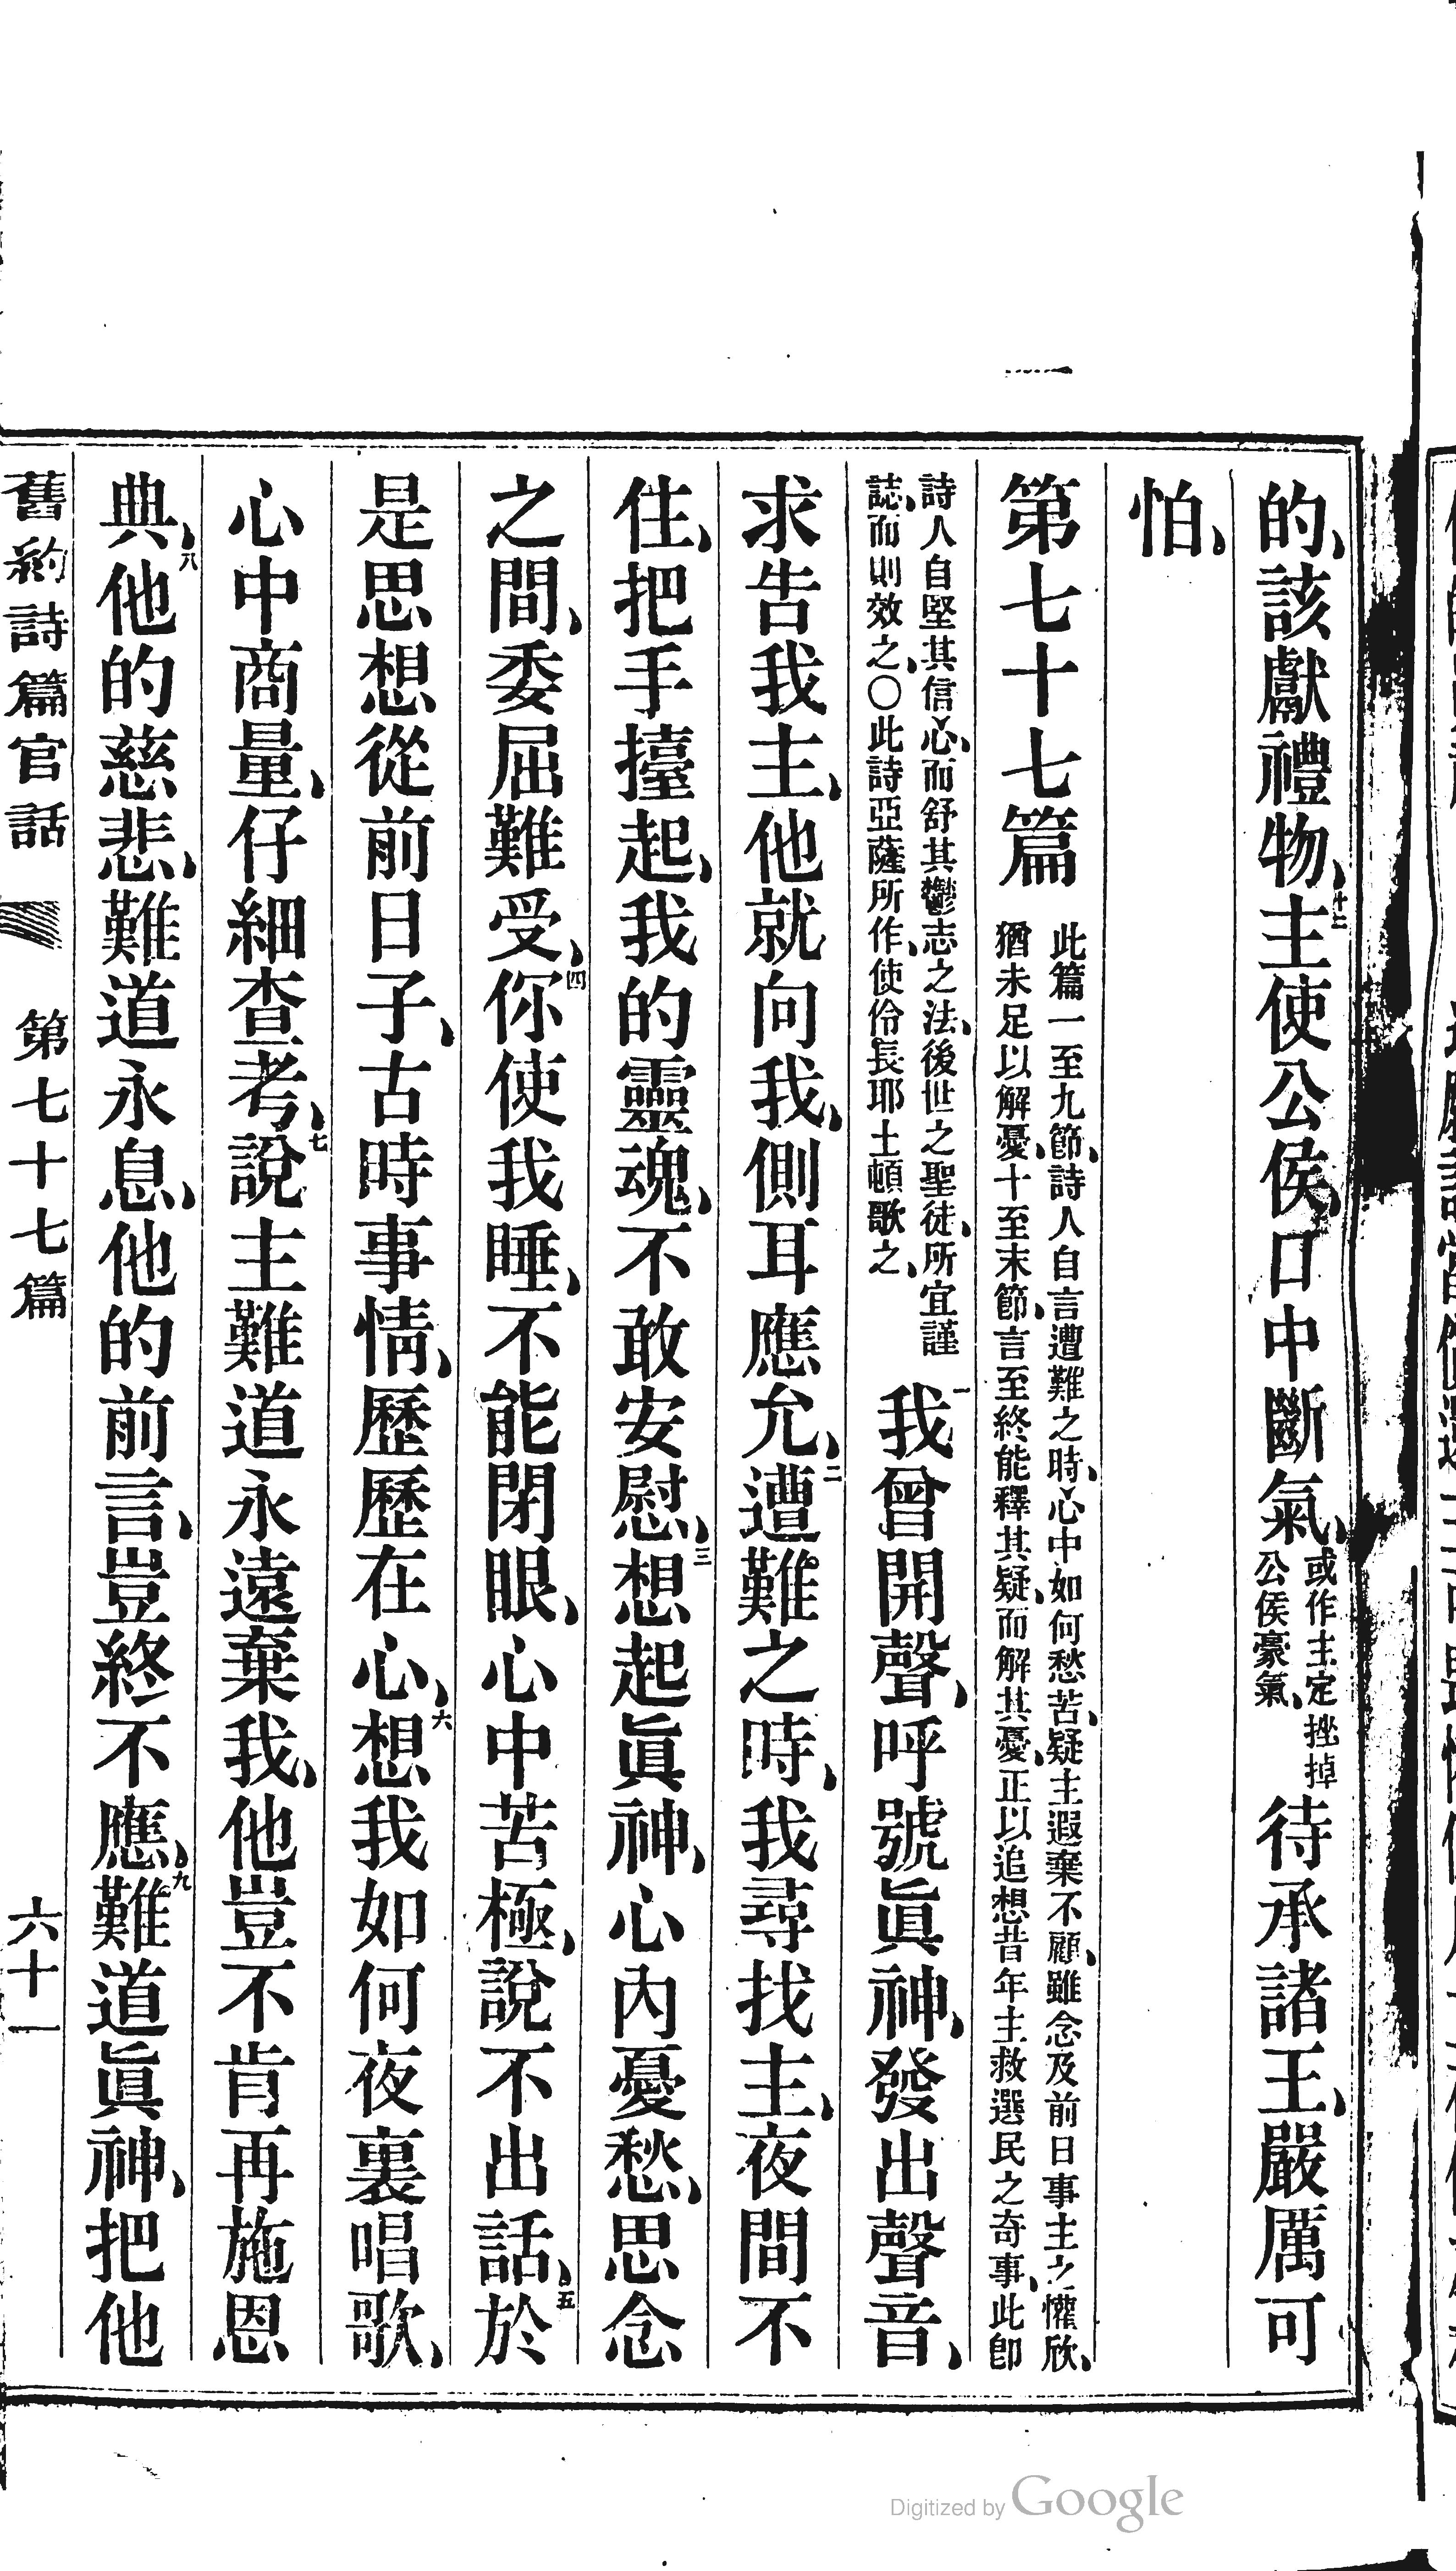 的、該獻禮物、十二主使公侯、口中斷氣、或作主定挫掉公侯豪氣、待承諸王、嚴厲可
怕、
第七十七篇 此篇一至九節、詩人自言遭難之時、心中如何愁苦、疑主遐棄不顧、雖念及前日事主之懽欣、
猶未足以解憂、十至末節、言至終能釋其疑、而解其憂、正以追想昔年主救選民之奇事、此卽
詩人自堅其信心、而舒其鬱志之法、後世之聖徒、所宜謹
誌、而則效之、〇此詩亞薩所作、使伶長耶土頓歌之、
一我曾開聲、呼號眞神、發出聲音、
求告我主、他就向我、側耳應允、二遭難之時、我尋找主、夜間不
住、把手擡起、我的靈魂、不敢安慰、三想起眞神、心內憂愁、思念
之間、委屈難受、四你使我睡、不能閉眼、心中苦極、說不出話、五於
是思想從前日子、古時事情、歷歷在心、六想我如何夜裏唱歌、
心中商量、仔細查考、七說主難道永遠棄我、他豈不肯再施恩
典、八他的慈悲、難道永息、他的前言、豈終不應、九難道眞神、把他
舊約詩篇官話 第七十七篇 六十一
Digitized by Google